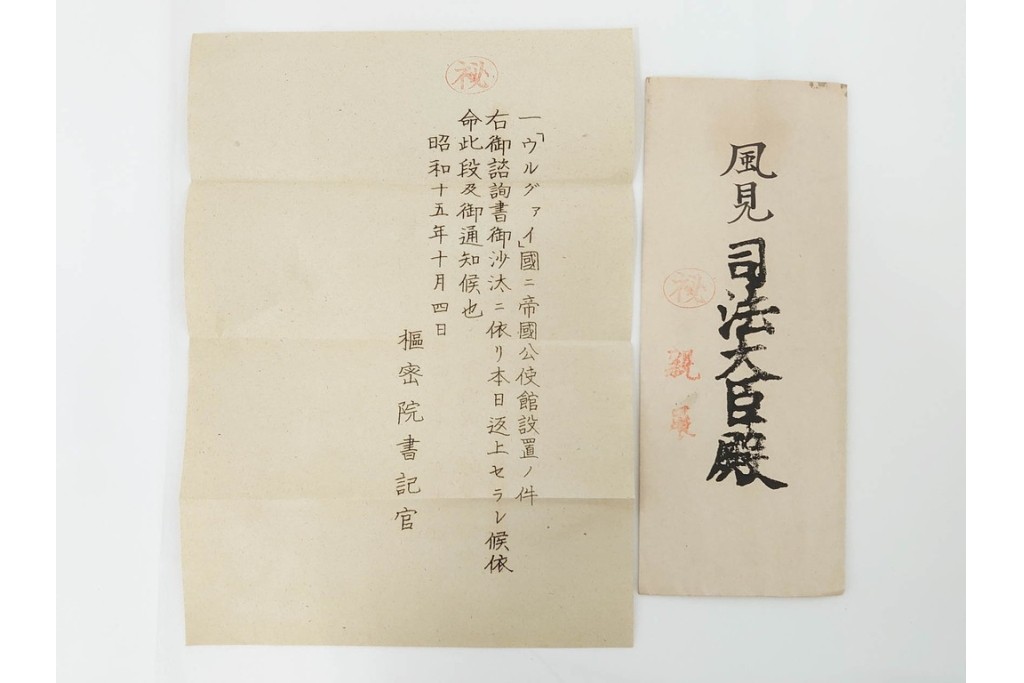 ㊙
一「ウルグァイ」國ニ帝國公使館設置ノ件
右御諮詢書御沙汰ニ依リ本日返上セラレ候依
命此段及御通知候也
昭和十五年十月四日
樞密院書記官
風見司法大臣殿
㊙
親展